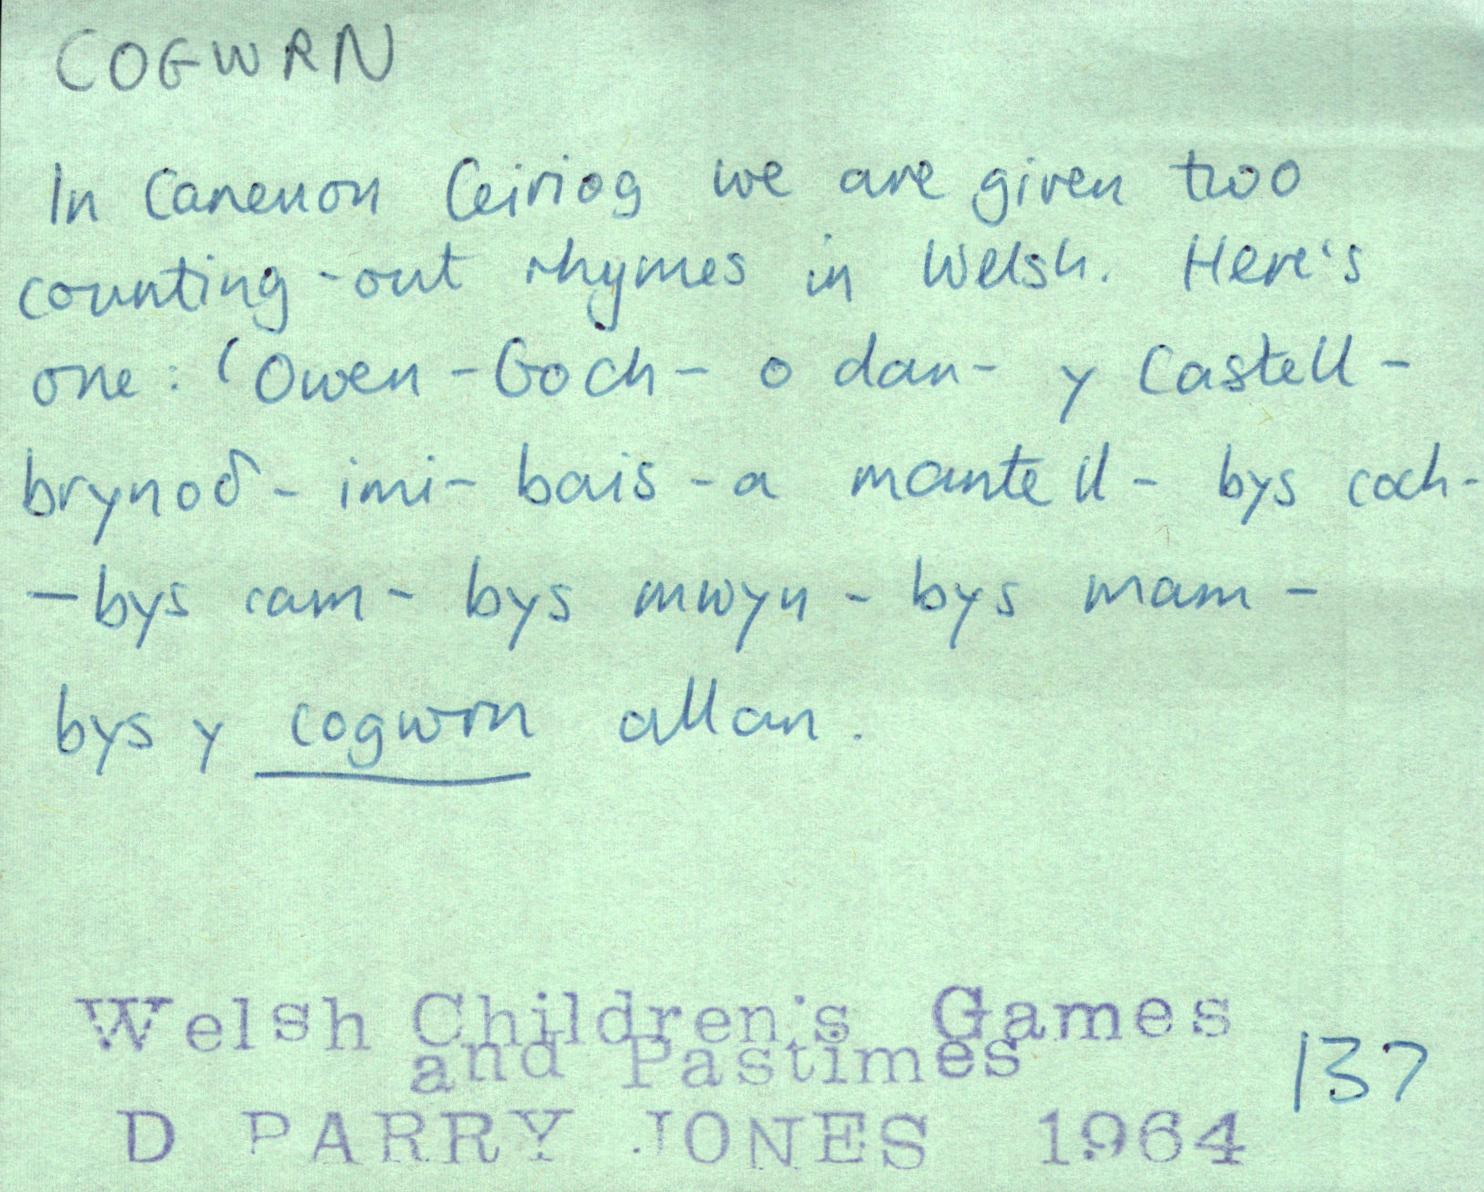 COGWRN
In Canenon Ceiriog we are given two
counting-out rhymes in Welsh. Here's
one: 'Owen - Goch - o dan - y Castell -
brynodd - imi - bais - a mantell - bys coch -
- bys cam - bys mwyn - bys mam -
bys y cogwrn allan.
Welsh Children's Games
and Pastimes
137
D PARRY JONES 1964